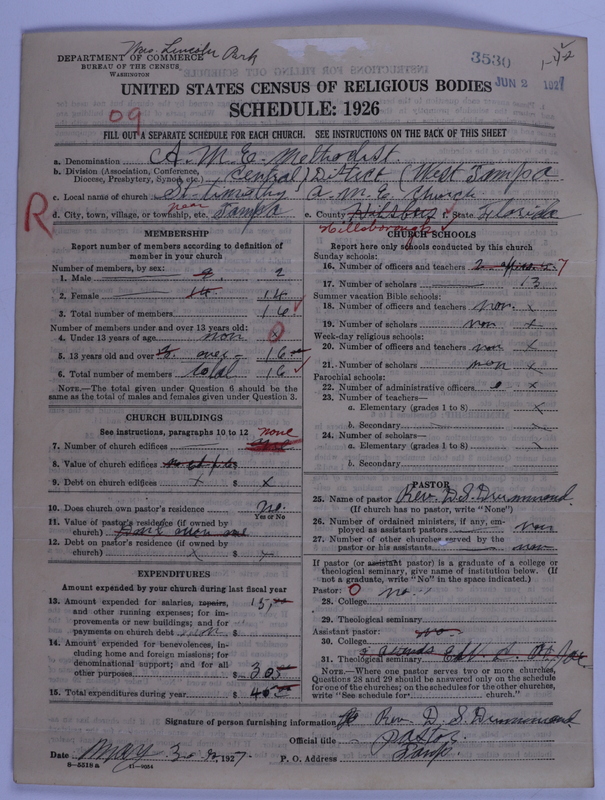 Mrs. Lincoln Park
DEPARTMENT OF COMMERCE
BUREAU OF THE CENSUS
WASHINGTON
3530
JUN 2 1927
UNITED STATES CENSUS OF RELIGIOUS BODIES
SCHEDULE: 1926
09
FILL OUT A SEPARATE SCHEDULE FOR EACH CHURCH. SEE INSTRUCTIONS ON THE BACK OF THIS SHEET
a. Denomination A. M. E. Methodist
b. Division (Association, Conference, Diocese, Presbytery, Synod, etc.) Central) District (West Tampa
c. Local name of church St. Timothy A.M.E. Church
R
d. City, town, village, or township, etc. near Tampa e. County Hillsboro State Florida
Hillsborough
MEMBERSHIP
Report number of members according to definition of
member in your church
Number of members, by sex:
1. Male 2 2
2. Female 14 14
3. Total number of members 16
Number of members under and over 13 years old:
4. Under 13 years of age non 0
5. 13 years old and over over 16
6. Total number of members total 16
NOTE.—The total given under Question 6 should be
the same as the total of males and females given under Question 3.
CHURCH BUILDINGS
See instructions, paragraphs 10 to 12 none
7. Number of church edifices
8. Value of church edifices $
9. Debt on church edifices x $ x
10. Does church own pastor's residence no.
Yes or No
11. Value of pastor's residence (if owned by
church) $
12. Debt on pastor's residence (if owned by
church) x $ x
EXPENDITURES
Amount expended by your church during last fiscal year
13. Amount expended for salaries, repairs,
and other running expenses; for im-
provements or new buildings; and for
payments on church debt $ 15.00
14. Amount expended for benevolences, in-
cluding home and foreign missions; for
denominational support; and for all
other purposes $ 305
15. Total expenditures during year $
CHURCH SCHOOLS
Report here only schools conducted by this church
Sunday schools:
16. Number of officers and teachers 2 7
17. Number of scholars 13
Summer vacation Bible schools:
18. Number of officers and teachers non. x
19. Number of scholars non x
Week-day religious schools:
20. Number of officers and teachers non x
21. Number of scholars non x
Parochial schools:
22. Number of administrative officers x
23. Number of teachers—
a. Elementary (grades 1 to 8) x
b. Secondary
24. Number of scholars—
a. Elementary (grades 1 to 8) x
b. Secondary
PASTOR
25. Name of pastor Rev. D. S. Drummond.
(If church has no pastor, write "None")
26. Number of ordained ministers, if any, em-
ployed as assistant pastors non
27. Number of other churches served by the
pastor or his assistants non
If pastor (or assistant pastor) is a graduate of a college or
theological seminary, give name of institution below. (If
not a graduate, write "No" in the space indicated.)
Pastor: 0 no.
28. College
29. Theological seminary
Assistant pastor: no
30. College
31. Theological seminary
NOTE.—Where one pastor serves two or more churches,
Questions 28 and 29 should be answered only on the schedule
for one of the churches; on the schedules for the other churches,
write "See schedule for church."
Signature of person furnishing information Rev. D. S. Drummond.
Official title Pastor
Date May 1927. P. O. Address
8—5518a 11—9054